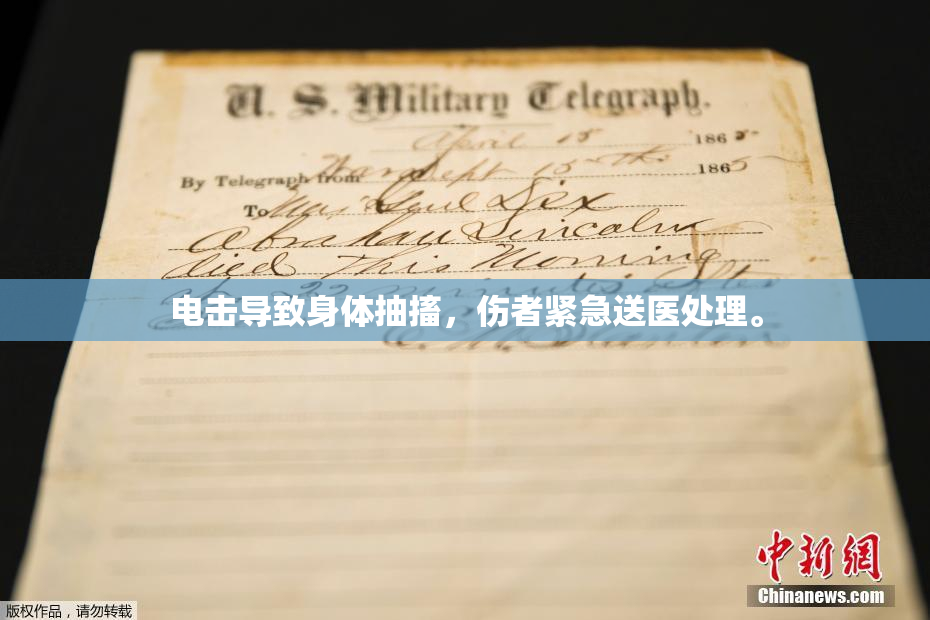 U. S. Military Telegraph.
April 15 1865
By Telegraph from War Dept 15th 1865
To Maj Genl Dix
Abraham Lincoln
died This Morning
at 22 minutes after
电击导致身体抽搐，伤者紧急送医处理。
E. M. Stanton
中新網
Chinanews.com
版权作品，请勿转载